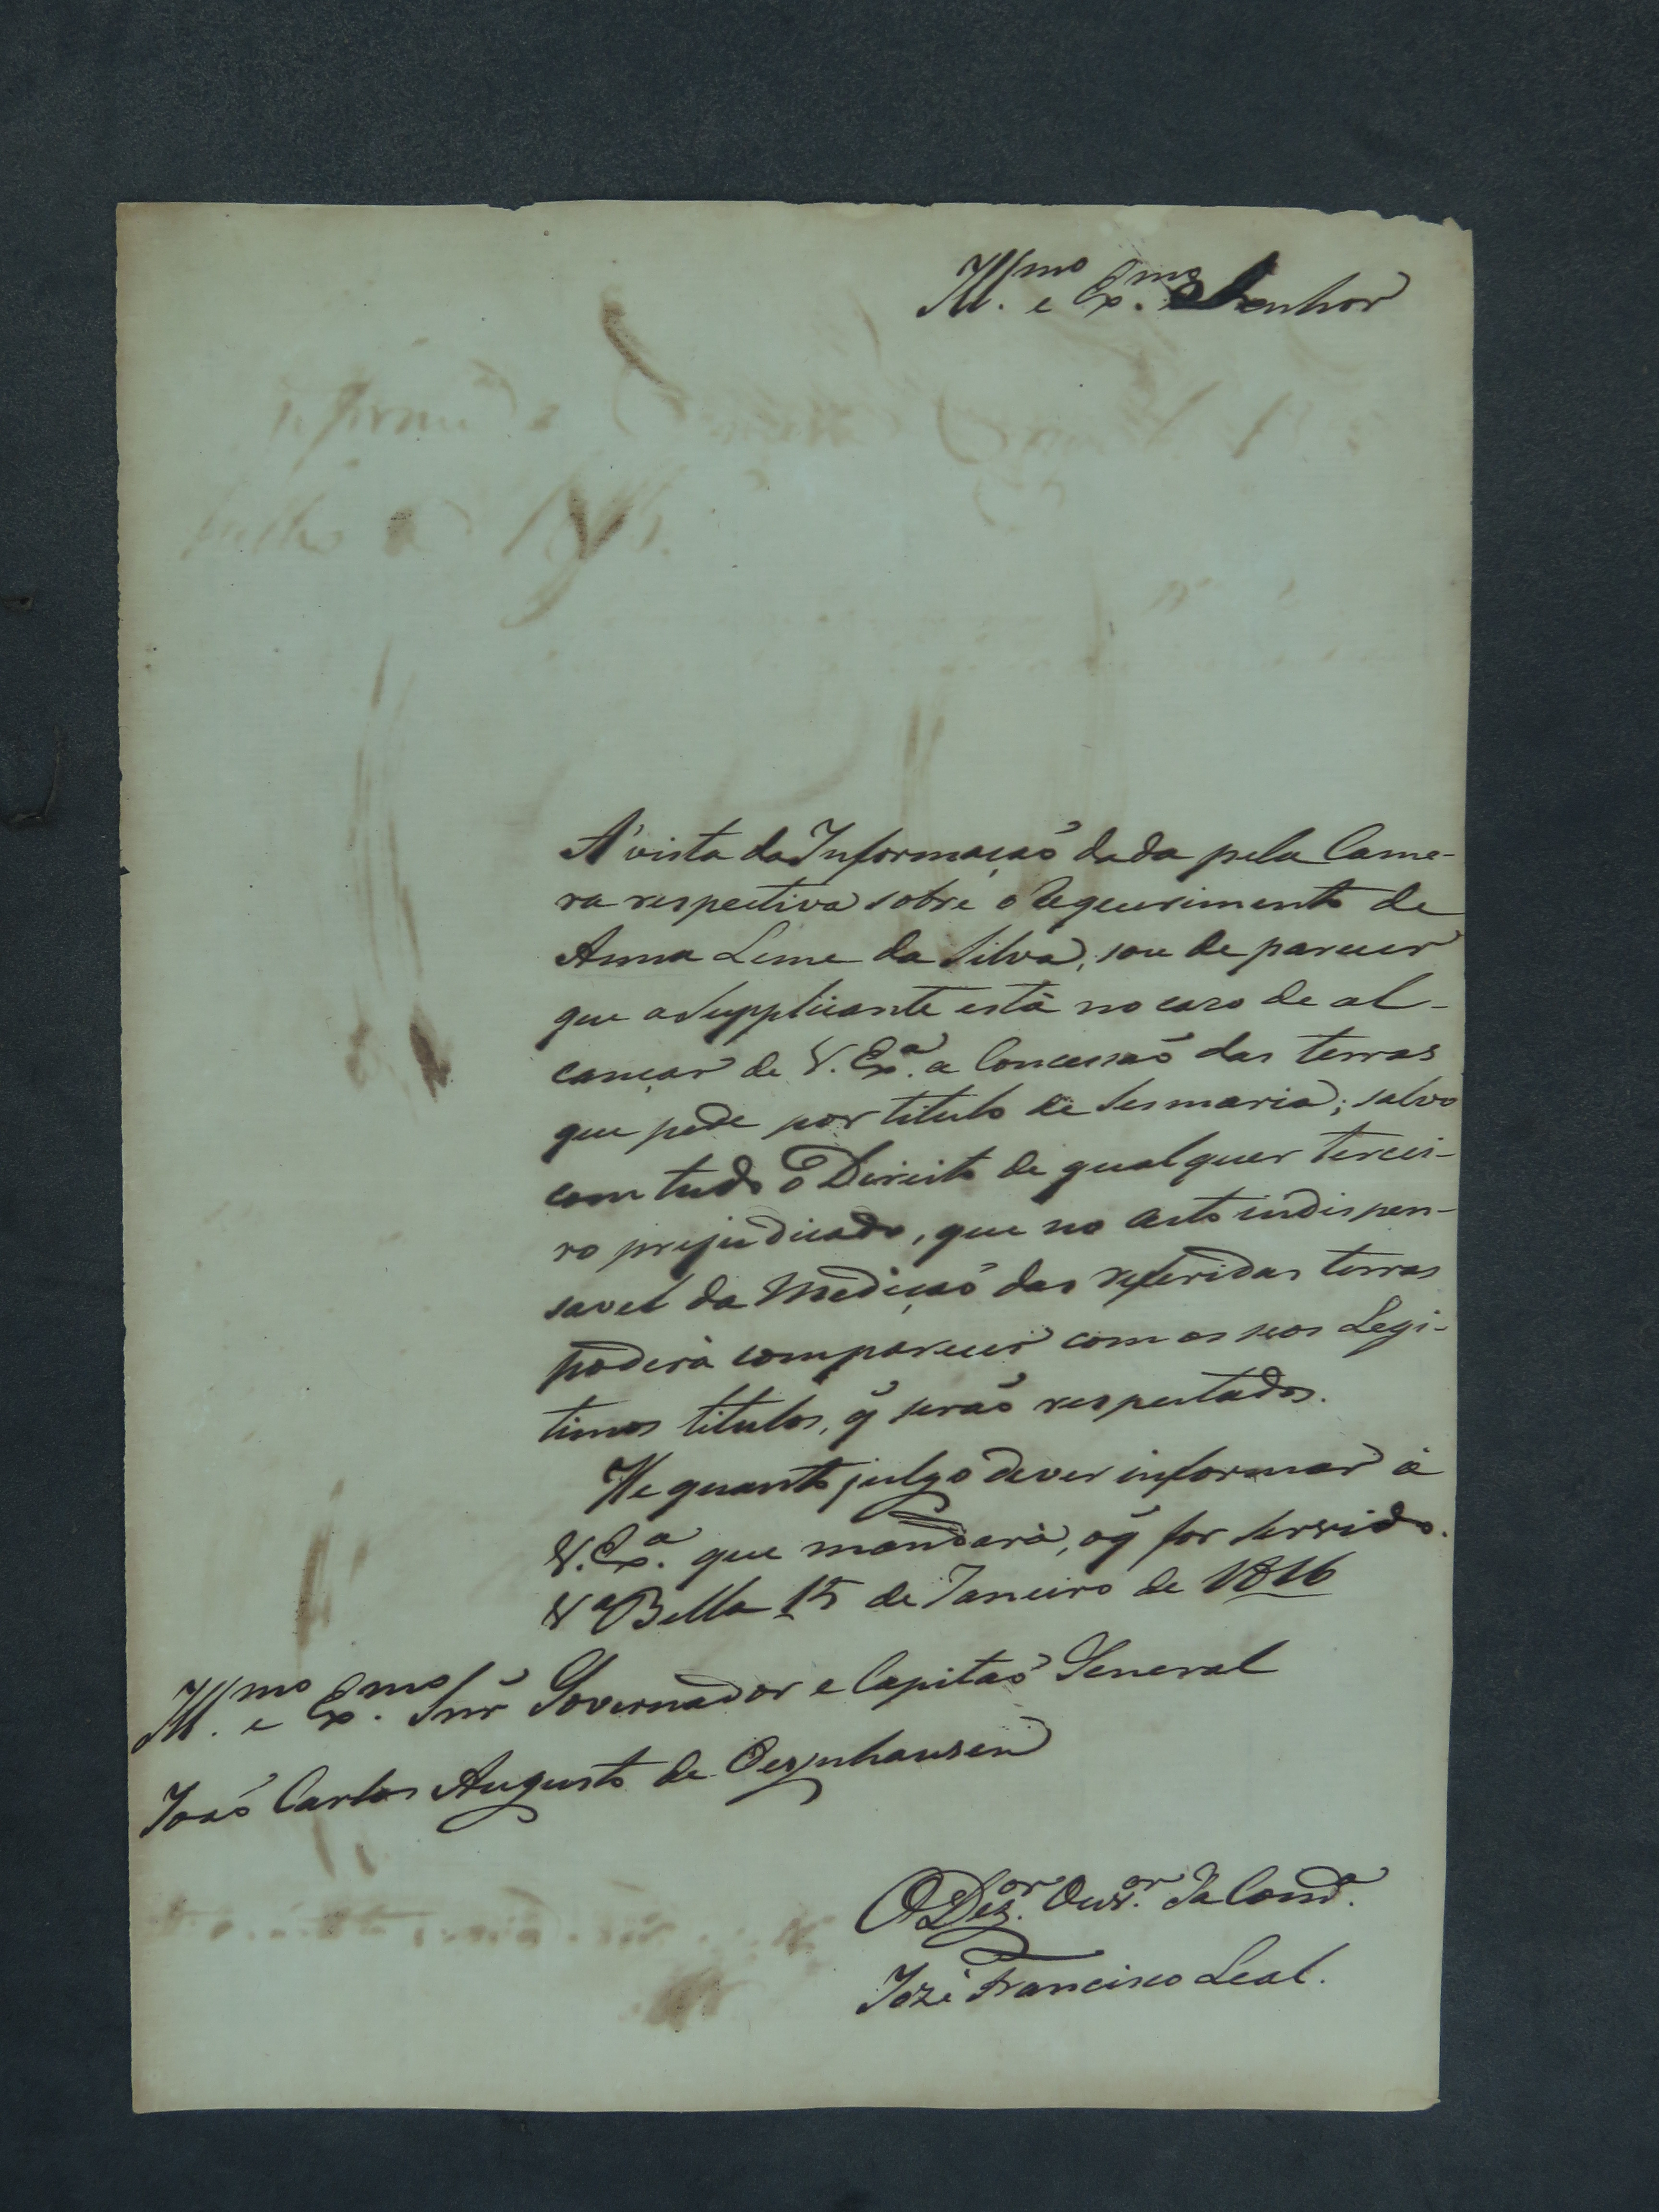 Ill.mo e Ex.mo Senhor
A' vista da Informaçaõ dada pela Came-
ra respectiva sobre o Requerimento de
Anna Leme da Silva, sou de parecer
que a Supplicante està no caso de al-
cançar de V. Ex.a a Concessaõ das terras
que pede por titulo de Sesmaria; salvo
com tudo o Direito de qualquer tercei-
ro prejudicado, que no acto indispen-
savel da Mediçaõ das referidas terras
poderà comparecer com os seos Legi-
timos titulos, q̃ seraõ respeitados.
He quanto julgo dever informar à
V. Ex.a que mandarà, o q̃ for servido.
V.a Bella 15 de Janeiro de 1816
Ill.mo e Ex.mo Snr̃ Governador e Capitaõ General
Joaõ Carlos Augusto de Oeynhausen
O Dez.or Ouv.or da Com.ca
Jozé Francisco Leal.